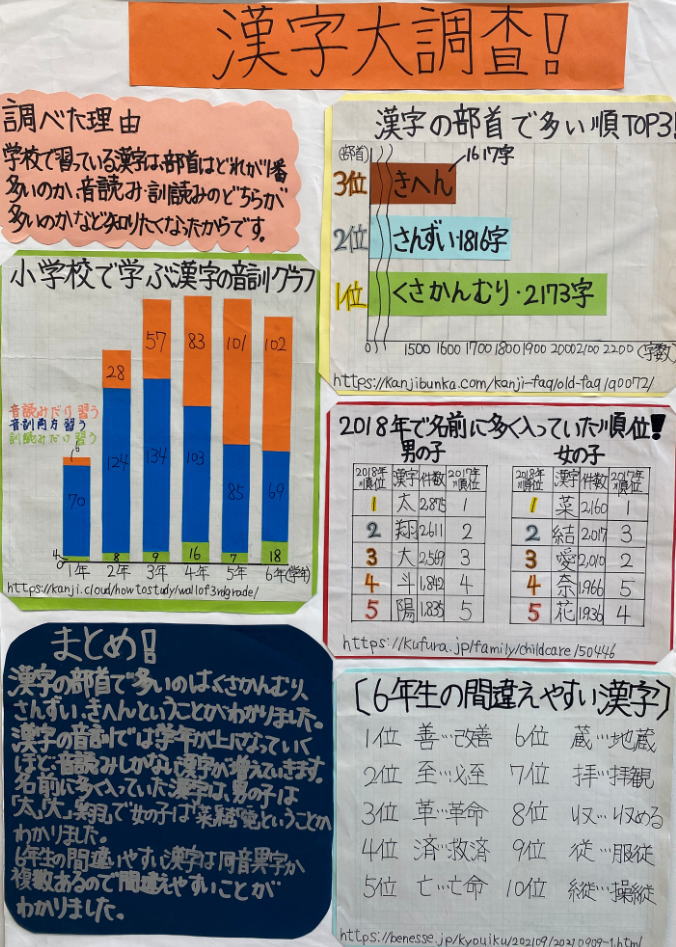 漢字大調査!
調べた理由
学校で習っている漢字は、部首はどれが1番
多いのか、音読み・訓読みのどちらが
多いのかなど知りたくなったからです。
漢字の部首で多い順TOP3!
(部首)
1617字
3位 きへん
2位 さんずい・1816字
1位 くさかんむり・2173字
0 1500 1600 1700 1800 1900 2000 2100 2200 (字数)
https://kanjibunka.com/kanji-faq/old-faq/q0072/
小学校で学ぶ漢字の音訓グラフ
57 83 101 102
28
音読みだけ習う
音訓両方習う
訓読みだけ習う
70 124 134 103 85 69
4 8 9 16 7 18
0
1年 2年 3年 4年 5年 6年(学年)
https://kanji.cloud/howtostudy/wallof3rdgrade/
2018年で名前に多く入っていた順位!!
男の子
2018年順位 漢字 件数 2017年順位
1 太 2,875 1
2 翔 2,611 2
3 大 2,569 3
4 斗 1,842 4
5 陽 1,835 5
女の子
2018年順位 漢字 件数 2017年順位
1 菜 2,160 1
2 結 2,017 3
3 愛 2,010 2
4 奈 1,966 5
5 花 1,936 4
https://kufura.jp/family/childcare/50446
まとめ!
漢字の部首で多いのはくさかんむり、
さんずい、きへんということがわかりました。
漢字の音訓では学年が上になっていく
ほど音読みしかない漢字が増えていきます。
名前に多く入っていた漢字は、男の子は
「太」「大」「翔」で女の子は「菜」「結」「愛」ということが
わかりました。
6年生の間違いやすい漢字は同音異字が
複数あるので間違えやすいことが
わかりました。
[6年生の間違えやすい漢字]
1位 善…改善 6位 蔵…地蔵
2位 至…至 7位 拝…拝観
3位 革…革命 8位 収…収める
4位 済…救済 9位 従…服従
5位 亡…亡命 10位 縦…操縦
https://benesse.jp/kyouiku/202109/20210909-1.html